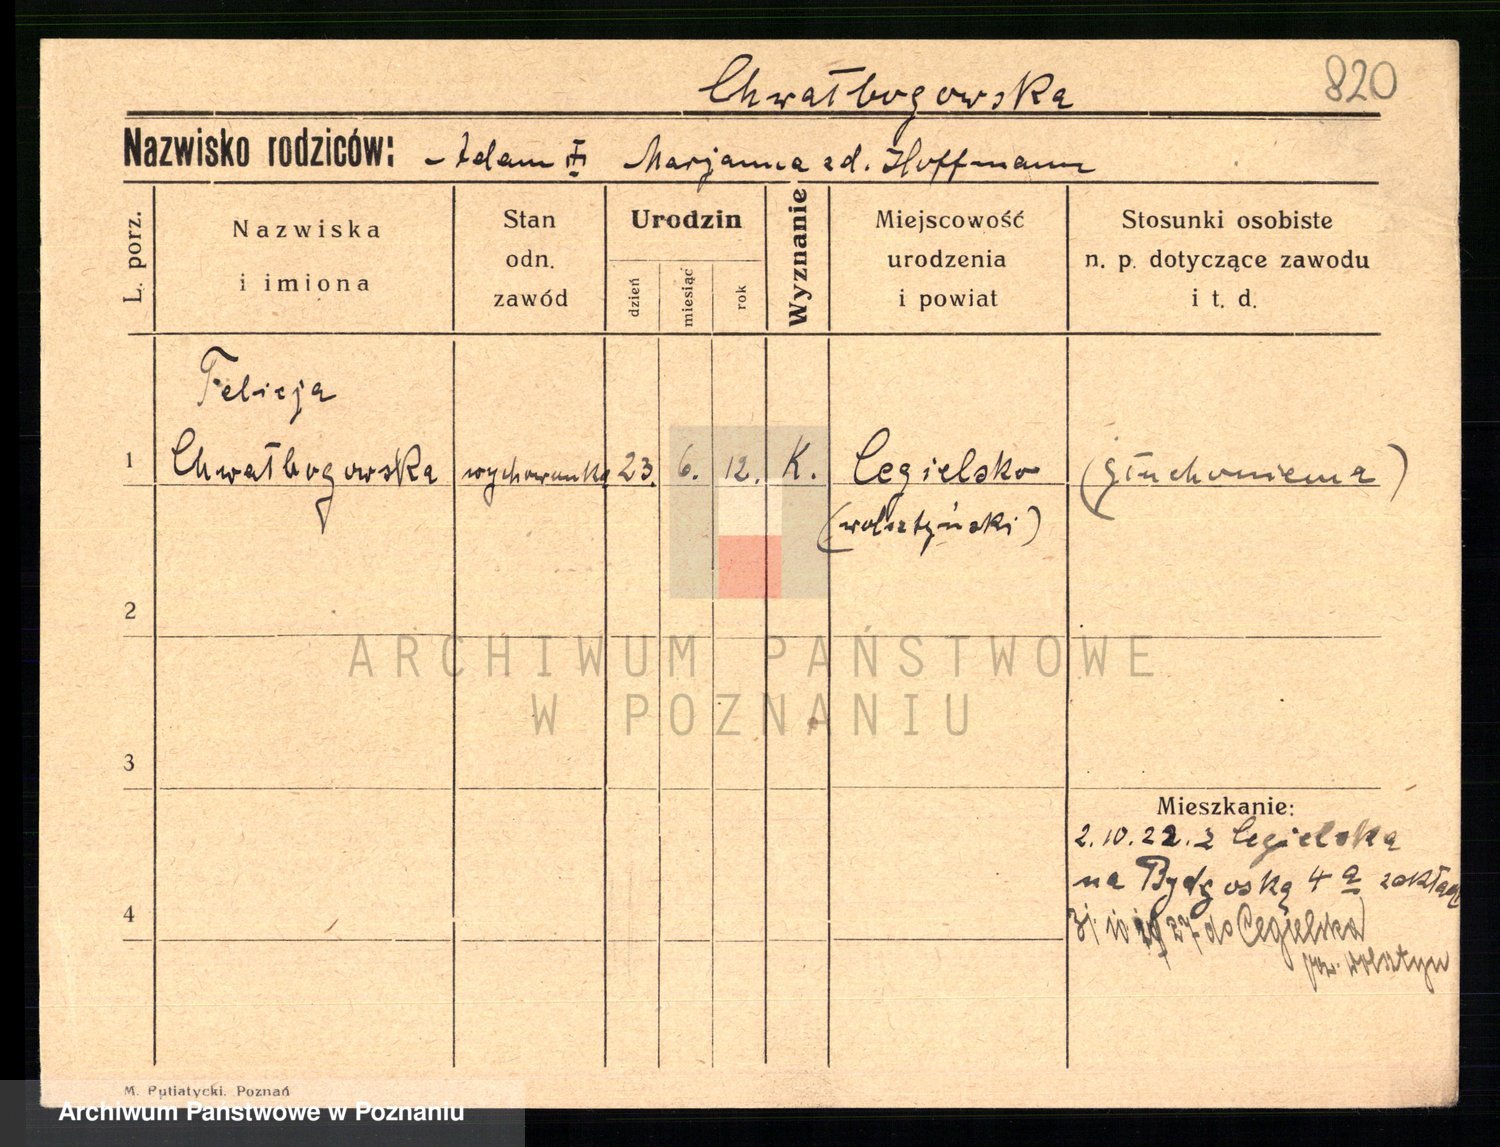 Chwałbogowska
820
Nazwisko rodziców: Adam Marjanna zd. Hoffmann
L. porz.
Nazwiska
i imiona
Stan
odn.
zawód
Urodzin
dzień
miesiąć
rok
Wyznanie
Miejscowość
urodzenia
i powiat
Stosunki osobiste
n. p. dotyczące zawodu
i t. d.
Felicja
1 Chwałbogowska wychowanka 23. 6. 12. K. Cegielsko (głuchoniema)
(wolsztyński)
2
ARCHIWUM PAŃSTWOWE
W POZNANIU
3
Mieszkanie:
2.10.22. z Cegielska
na Bydgoską 4 a zakład
4
31 10 1927 do Cegielska
pow. Wolsztyn
M. Putiatycki. Poznań
Archiwum Państwowe w Poznaniu